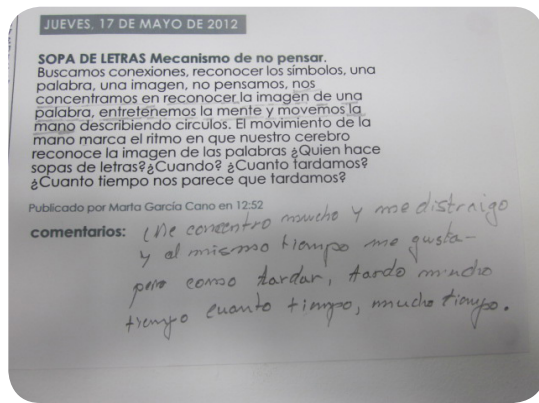 JUEVES, 17 DE MAYO DE 2012
SOPA DE LETRAS Mecanismo de no pensar.
Buscamos conexiones, reconocer los símbolos, una
palabra, una imagen, no pensamos, nos
concentramos en reconocer la imagen de una
palabra, entretenemos la mente y movemos la
mano describiendo circulos. El movimiento de la
mano marca el ritmo en que nuestro cerebro
reconoce la imagen de las palabras ¿Quien hace
sopas de letras?¿Cuando? ¿Cuanto tardamos?
¿Cuanto tiempo nos parece que tardamos?
Publicado por Marta García Cano en 12:52
comentarios: Me concentro mucho y me distraigo
y al mismo tiempo me gusta-
pero como tardar, tardo mucho
tiempo cuanto tiempo, mucho tiempo.